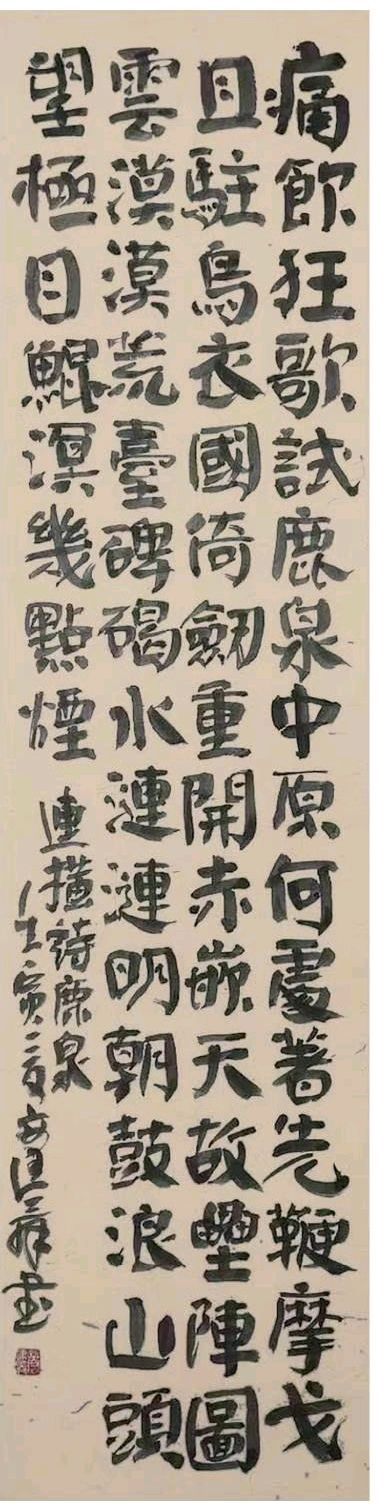 痛飲狂歌試鹿泉中原何處著先鞭摩戈
且駐烏衣國倚劍重開赤嵌天故壘陣圖
雲漠漠荒臺碑碣水漣漣明朝鼓浪山頭
望極目鯤溟幾點煙
連橫詩鹿泉
壬寅
書